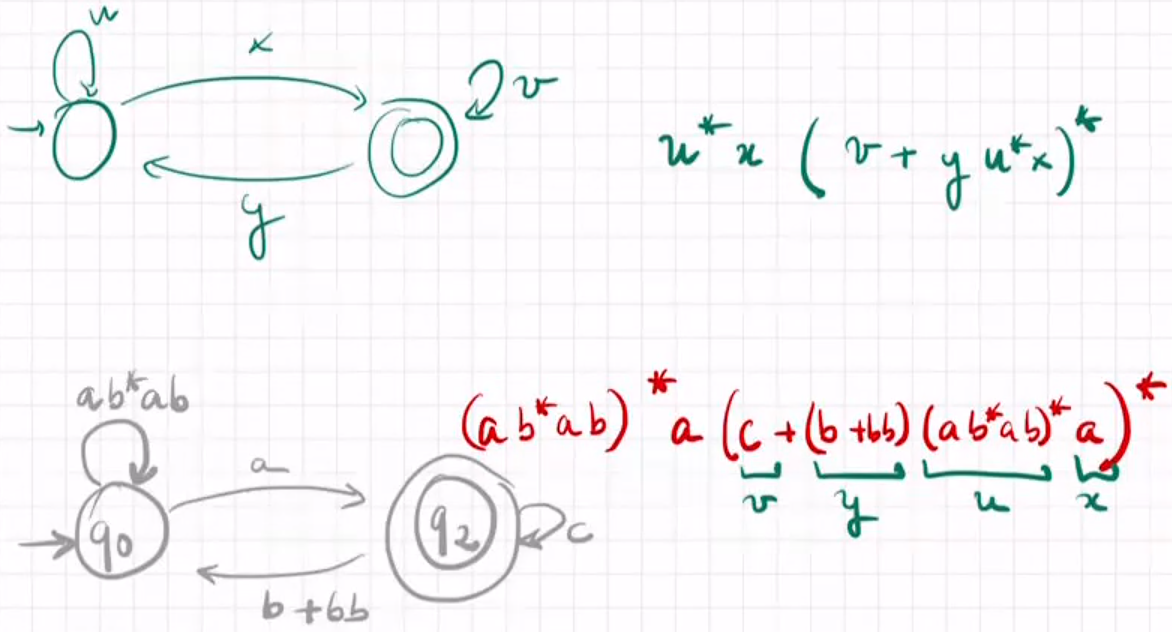 u
x
v
y
u* x ( v + y u* x )*
ab*ab
a
q0
q2
c
b + bb
(ab*ab)* a (c + (b + bb) (ab*ab)* a)*
v y u x